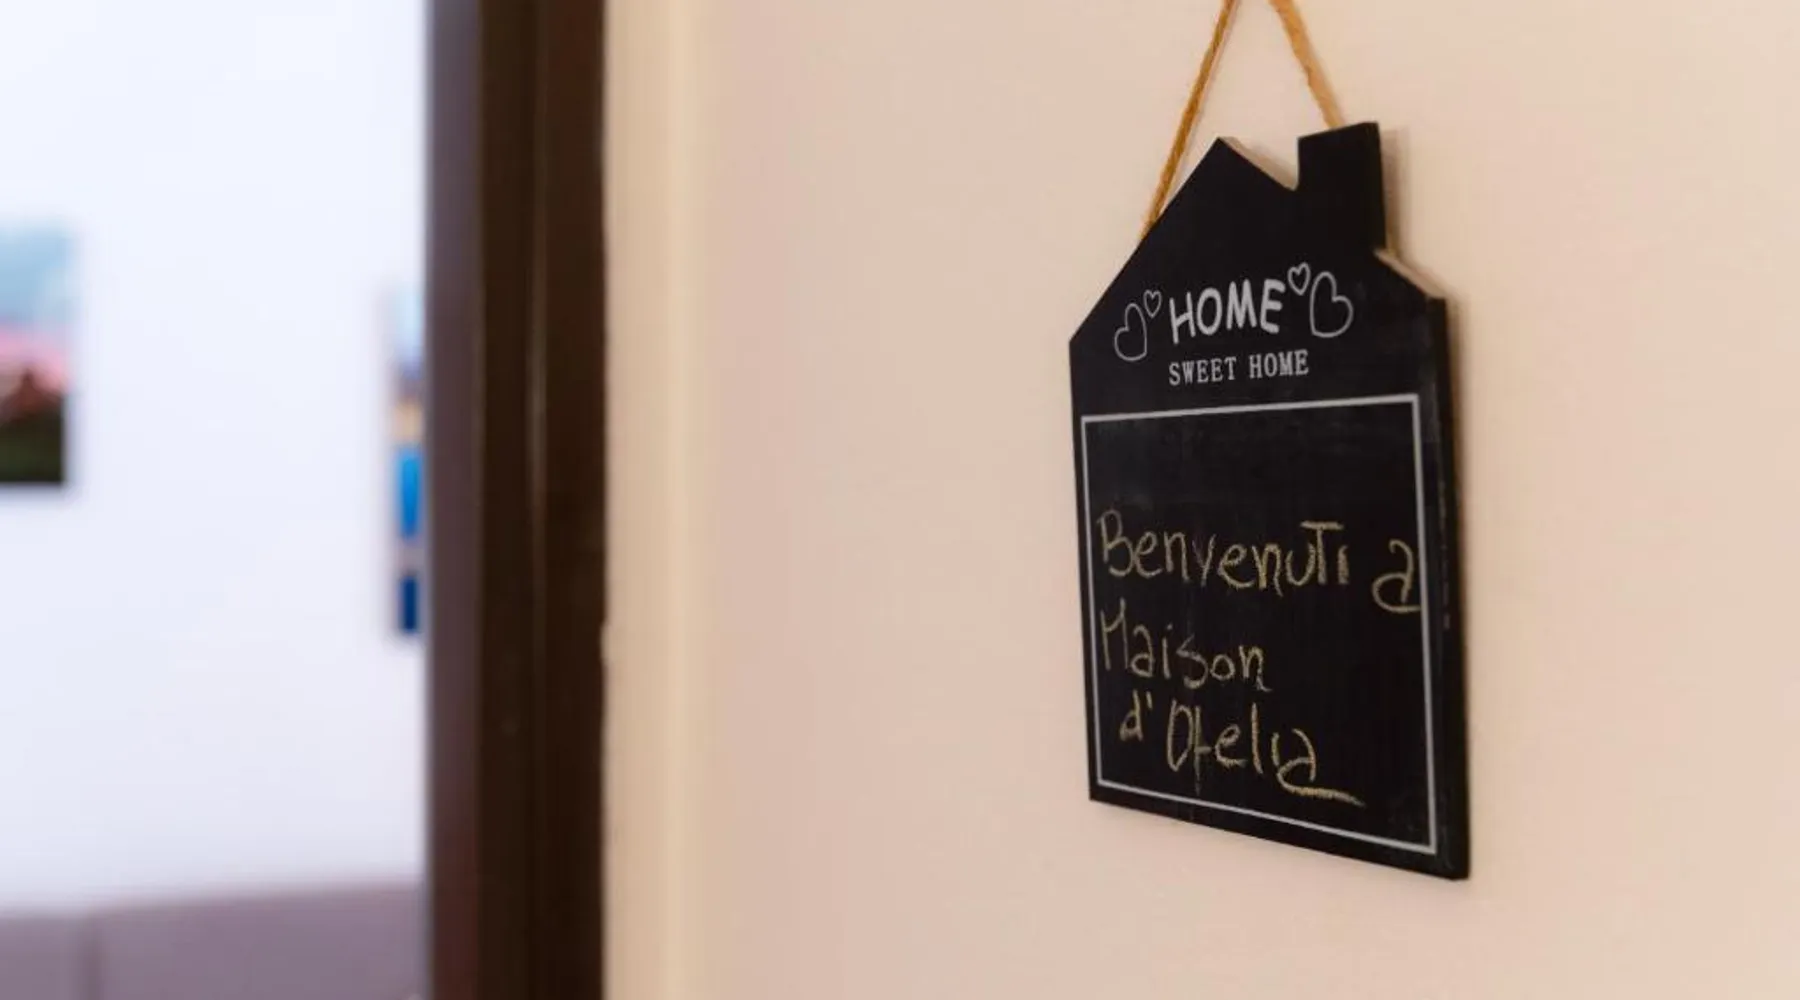 HOME
SWEET HOME
Benvenuti a
Maison
d'Ofelia